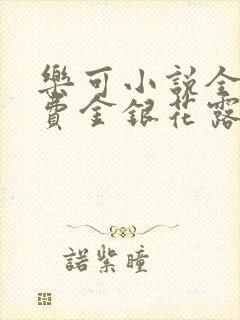 樂可小說全
費金銀花露
諾紫瞳